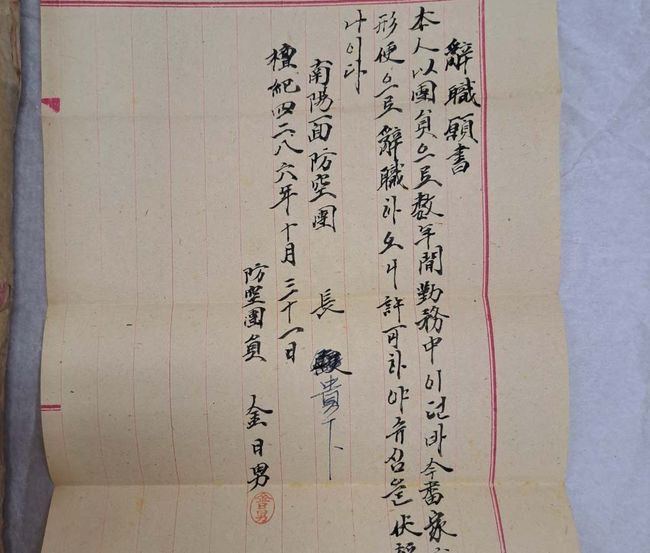 辭職願書
本人以團員으로數年間勤務中이던바今番家
形便으로辭職하오니許可하야쥬심을伏
나이다
南陽面防空團 長 貴下
檀紀四二八六年十月三十一日
防空團員 金日男
金日男